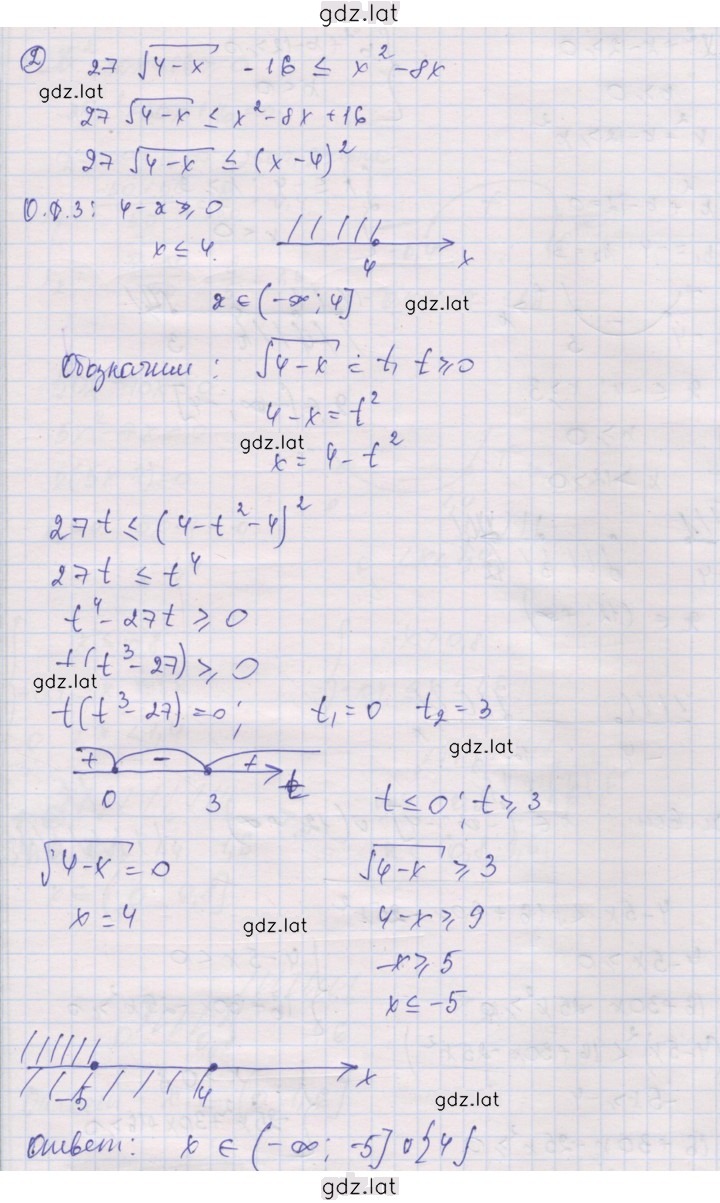 gdz.lat
② 27 √(4-x) - 16 ≤ x² - 8x
gdz.lat
27 √(4-x) ≤ x² - 8x + 16
27 √(4-x) ≤ (x - 4)²
О.Д.З: 4 - x ≥ 0
x ≤ 4.
4 x
x ∈ (-∞; 4]
gdz.lat
Обозначим : √(4-x) = t, t ≥ 0
4 - x = t²
gdz.lat
x = 4 - t²
27t ≤ (4 - t² - 4)²
27t ≤ t⁴
t⁴ - 27t ≥ 0
t(t³ - 27) ≥ 0
gdz.lat
t(t³ - 27) = 0; t₁ = 0 t₂ = 3
gdz.lat
+ - + t
0 3
t ≤ 0; t ≥ 3
√(4-x) = 0 √(4-x) ≥ 3
x = 4 4 - x ≥ 9
gdz.lat
-x ≥ 5
x ≤ -5
-5 4 x
gdz.lat
Ответ: x ∈ (-∞; -5] ∪ {4}
gdz.lat